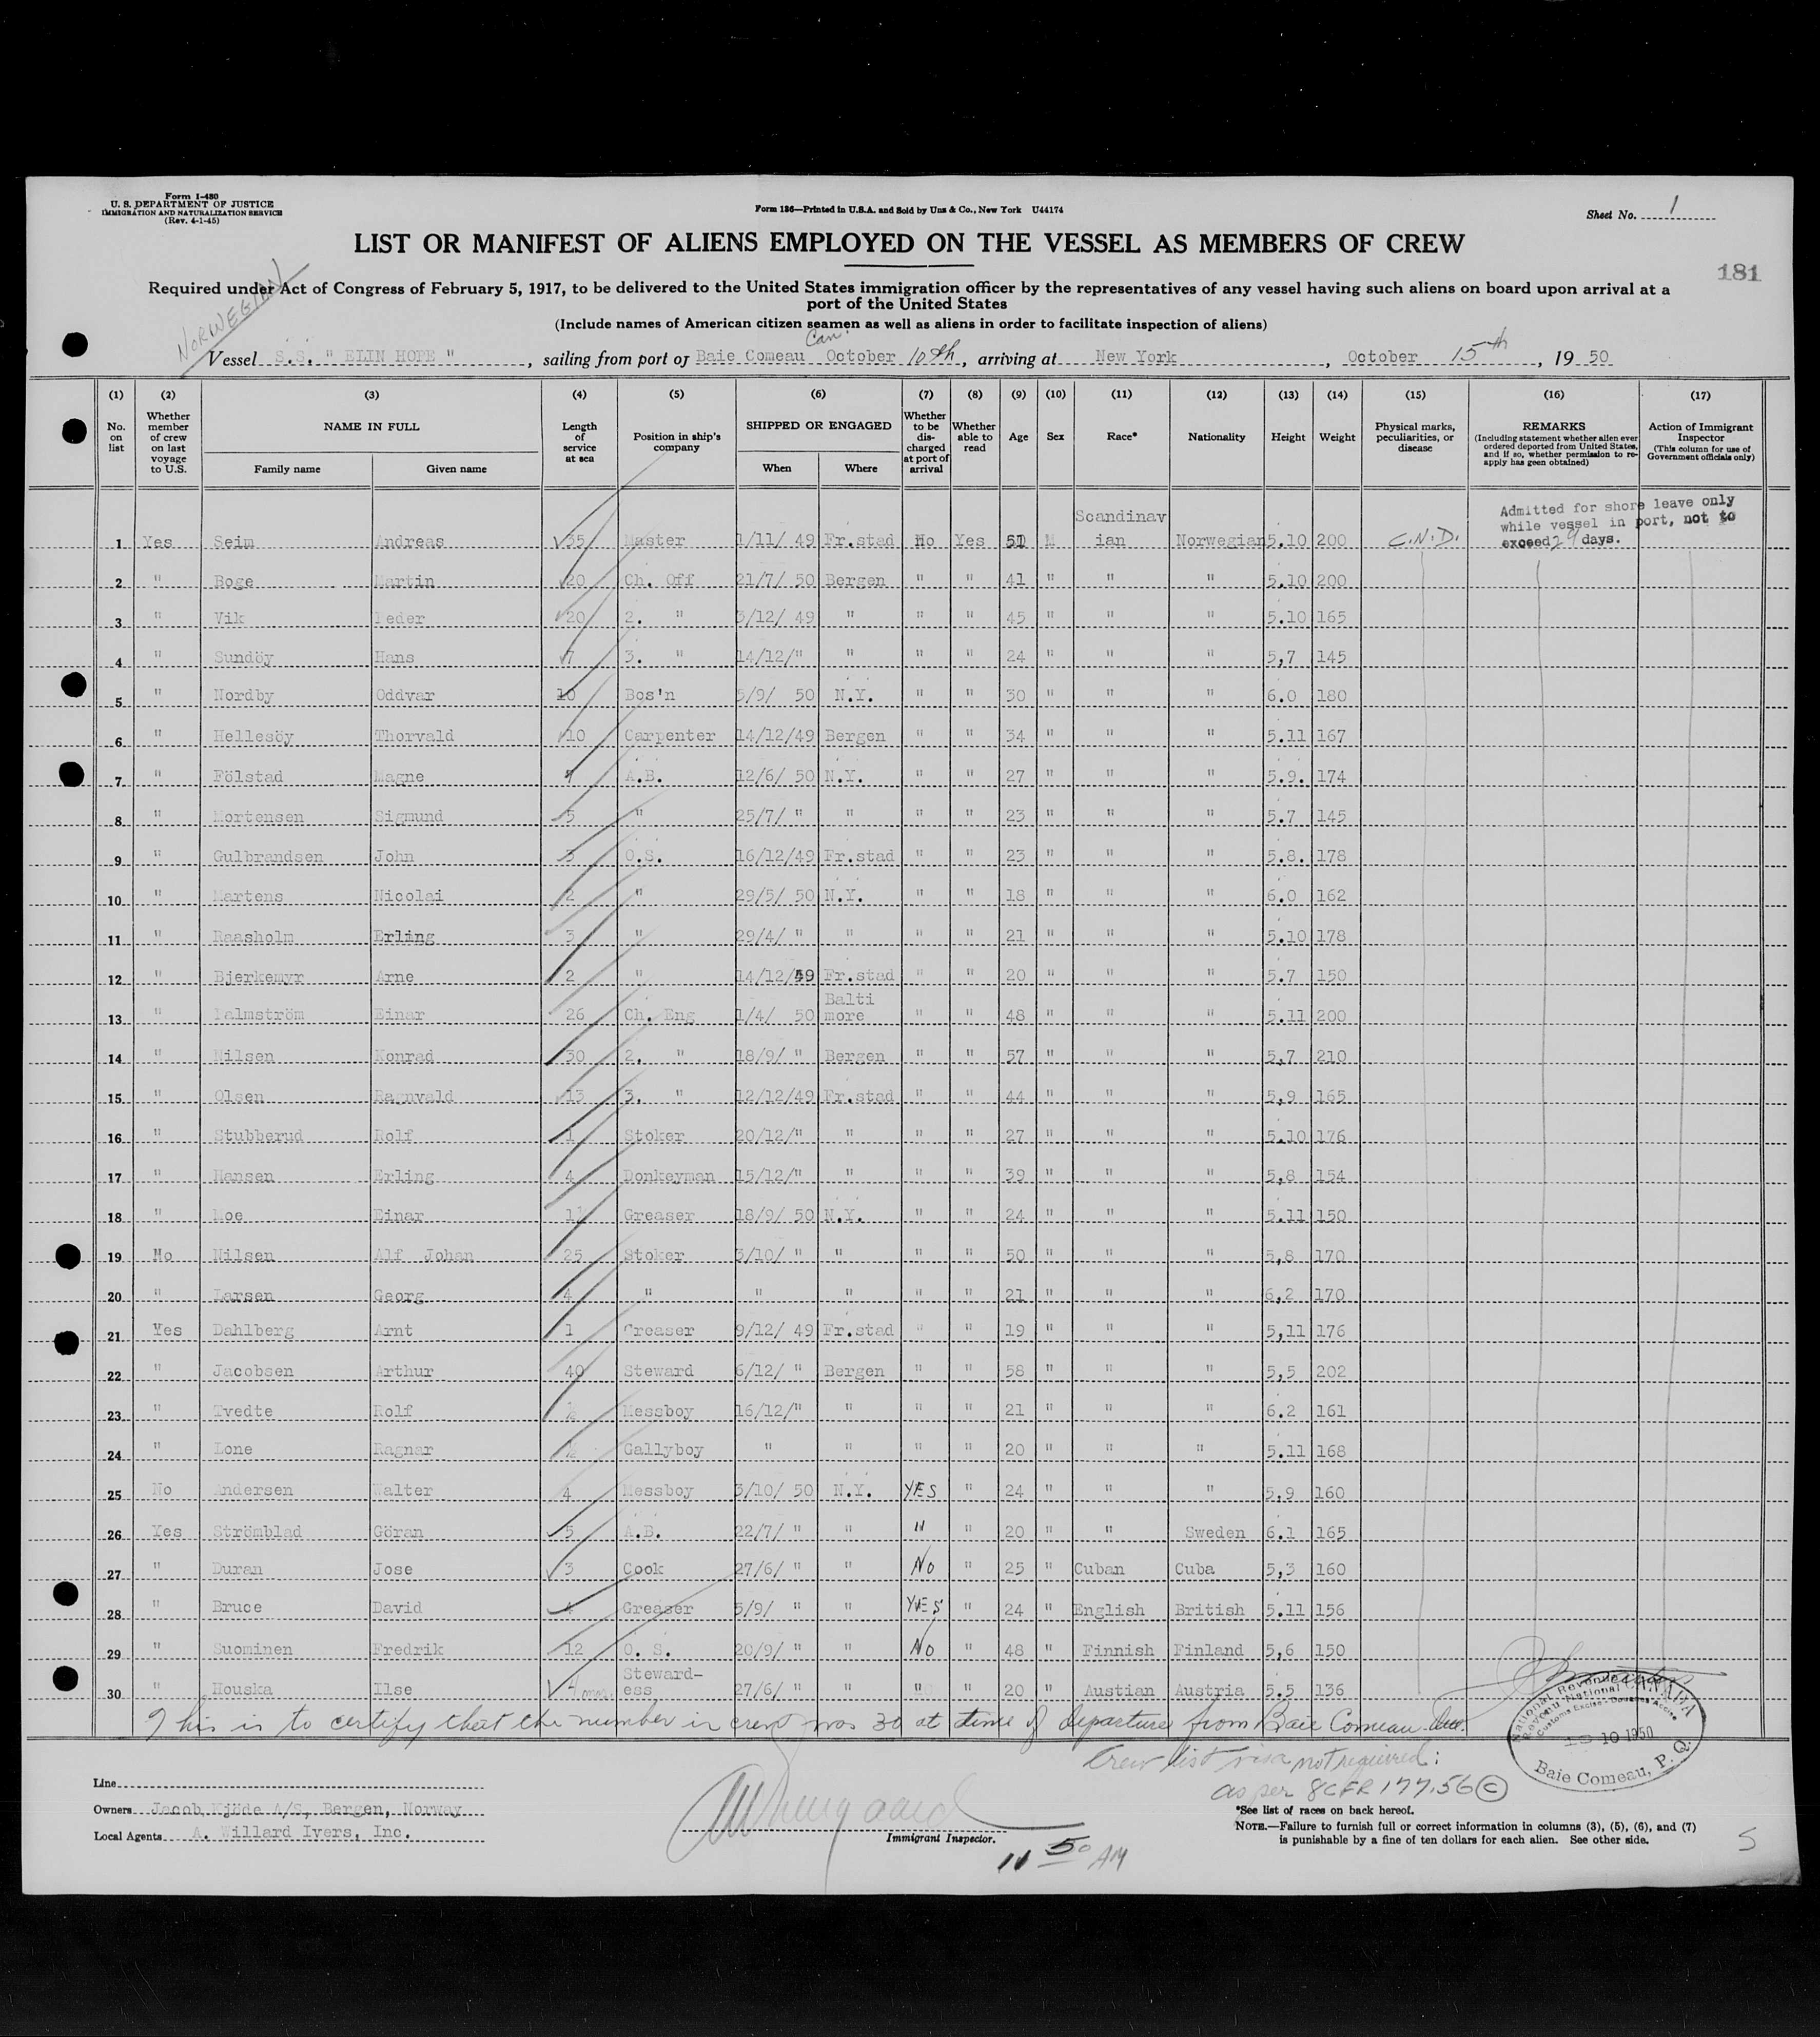 Form I-480
U. S. DEPARTMENT OF JUSTICE
IMMIGRATION AND NATURALIZATION SERVICE
(Rev. 4-1-45)
Form 136—Printed in U.S.A. and Sold by Unz & Co., New York U44174
Sheet No. 1
LIST OR MANIFEST OF ALIENS EMPLOYED ON THE VESSEL AS MEMBERS OF CREW
181
Required under Act of Congress of February 5, 1917, to be delivered to the United States immigration officer by the representatives of any vessel having such aliens on board upon arrival at a
port of the United States
(Include names of American citizen seamen as well as aliens in order to facilitate inspection of aliens)
NORWEGIAN
Can.
Vessel S.S. " ELIN HOPE ", sailing from port of Baie Comeau October 10th, arriving at New York, October 15th, 19 50
(1) (2) (3) (4) (5) (6) (7) (8) (9) (10) (11) (12) (13) (14) (15) (16) (17)
No. on list
Whether member of crew on last voyage to U.S.
NAME IN FULL
Family name Given name
Length of service at sea
Position in ship's company
SHIPPED OR ENGAGED
When Where
Whether to be discharged at port of arrival
Whether able to read
Age
Sex
Race*
Nationality
Height
Weight
Physical marks, peculiarities, or disease
REMARKS
(Including statement whether alien ever ordered deported from United States, and if so, whether permission to re-apply has geen obtained)
Action of Immigrant Inspector
(This column for use of Government officials only)
Admitted for shore leave only
while vessel in port, not to
exceed 29 days.
1 Yes Seim Andreas 35 Master 1/11/ 49 Fr.stad No Yes 51 M Scandinavian Norwegian 5.10 200 C.N.D.
2 " Boge Martin 20 Ch. Off 21/7/ 50 Bergen " " 41 " " " 5.10 200
3 " Vik Peder 20 2. " 3/12/ 49 " " " 45 " " " 5.10 165
4 " Sundöy Hans 7 3. " 14/12/" " " " 24 " " " 5,7 145
5 " Nordby Oddvar 10 Bos'n 5/9/ 50 N.Y. " " 30 " " " 6.0 180
6 " Hellesöy Thorvald 10 Carpenter 14/12/49 Bergen " " 34 " " " 5.11 167
7 " Fölstad Magne A.B. 12/6/ 50 N.Y. " " 27 " " " 5.9. 174
8 " Mortensen Sigmund 5 " 25/7/ " " " " 23 " " " 5.7 145
9 " Gulbrandsen John 3 O.S. 16/12/49 Fr.stad " " 23 " " " 5.8. 178
10 " Martens Nicolai 2 " 29/5/ 50 N.Y. " " 18 " " " 6.0 162
11 " Raasholm Erling 3 " 29/4/ " " " " 21 " " " 5.10 178
12 " Bjerkemyr Arne 2 " 14/12/49 Fr.stad " " 20 " " " 5.7 150
13 " Malmström Einar 26 Ch. Eng 1/4/ 50 Baltimore " " 48 " " " 5.11 200
14 " Nilsen Konrad 30 2. " 18/9/ " Bergen " " 57 " " " 5,7 210
15 " Olsen Ragnvald 13 3. " 12/12/49 Fr.stad " " 44 " " " 5,9 165
16 " Stubberud Rolf 1 Stoker 20/12/" " " " 27 " " " 5.10 176
17 " Hansen Erling 4 Donkeyman 15/12/" " " " 39 " " " 5,8 154
18 " Moe Einar Greaser 18/9/ 50 N.Y. " " 24 " " " 5.11 150
19 No Nilsen Alf Johan 25 Stoker 3/10/ " " " " 50 " " " 5,8 170
20 " Larsen Georg 4 " " " " " 21 " " " 6,2 170
21 Yes Dahlberg Arnt 1 Greaser 9/12/ 49 Fr.stad " " 19 " " " 5,11 176
22 " Jacobsen Arthur 40 Steward 6/12/ " Bergen " " 58 " " " 5,5 202
23 " Tvedte Rolf ½ Messboy 16/12/" " " " 21 " " " 6.2 161
24 " Lone Ragnar ½ Gallyboy " " " " 20 " " " 5.11 168
25 No Andersen Walter 4 Messboy 3/10/ 50 N.Y. YES " 24 " " " 5,9 160
26 Yes Strömblad Göran 5 A.B. 22/7/ " " " " 20 " " Sweden 6.1 165
27 " Duran Jose 3 Cook 27/6/ " " No " 25 " Cuban Cuba 5,3 160
28 " Bruce David 4 Greaser 5/9/ " " YES " 24 " English British 5.11 156
29 " Suominen Fredrik 12 O. S. 20/9/ " " No " 48 " Finnish Finland 5,6 150
30 " Houska Ilse 4 mos. Stewardess 27/6/ " " " " 20 " Austian Austria 5.5 136
This is to certify that the number in crew was 30 at time of departure from Baie Comeau Que.
National Revenue CANADA
Revenu National
Customs Excise - Douanes Accise
10 1950
Baie Comeau, P. Q.
Crew list visa not required:
as per 8CFR 177.56 (c)
Line
Owners Jacob Kjöde A/S, Bergen, Norway
Local Agents A. Willard Ivers, Inc.
Immigrant Inspector.
11 50 AM
*See list of races on back hereof.
NOTE.—Failure to furnish full or correct information in columns (3), (5), (6), and (7)
is punishable by a fine of ten dollars for each alien. See other side.
5